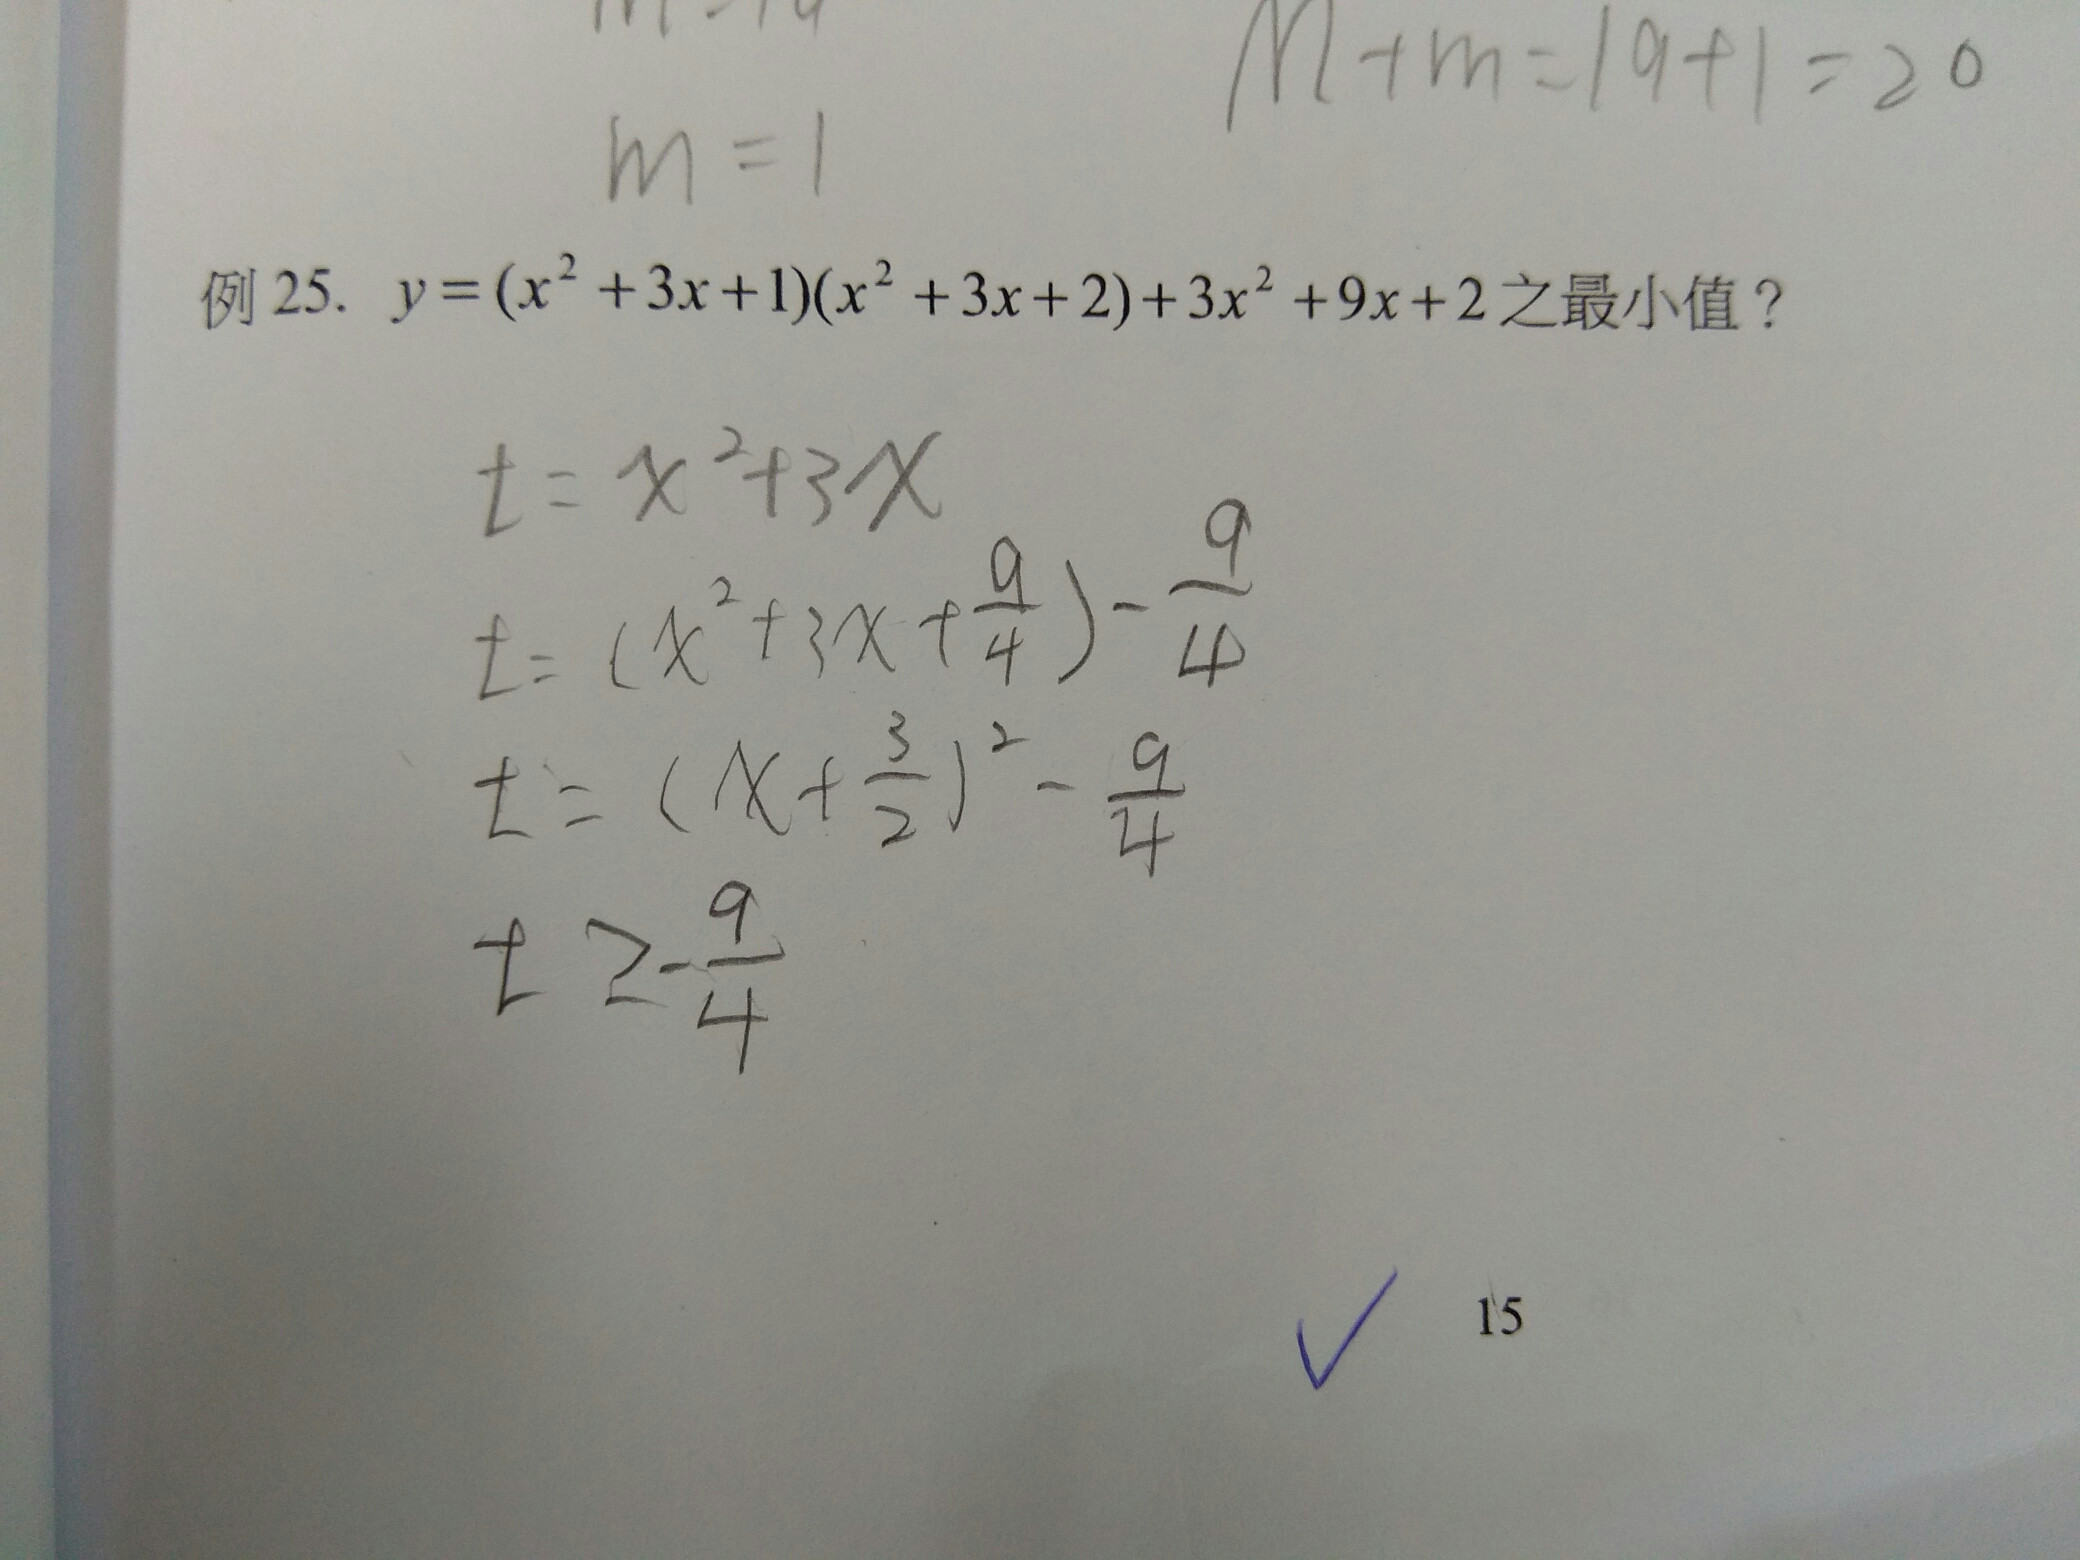 M+m=19+1=20
m=1
例 25. y=(x²+3x+1)(x²+3x+2)+3x²+9x+2之最小值?
t=x²+3x
t=(x²+3x+9/4)-9/4
t=(x+3/2)²-9/4
t≥-9/4
15